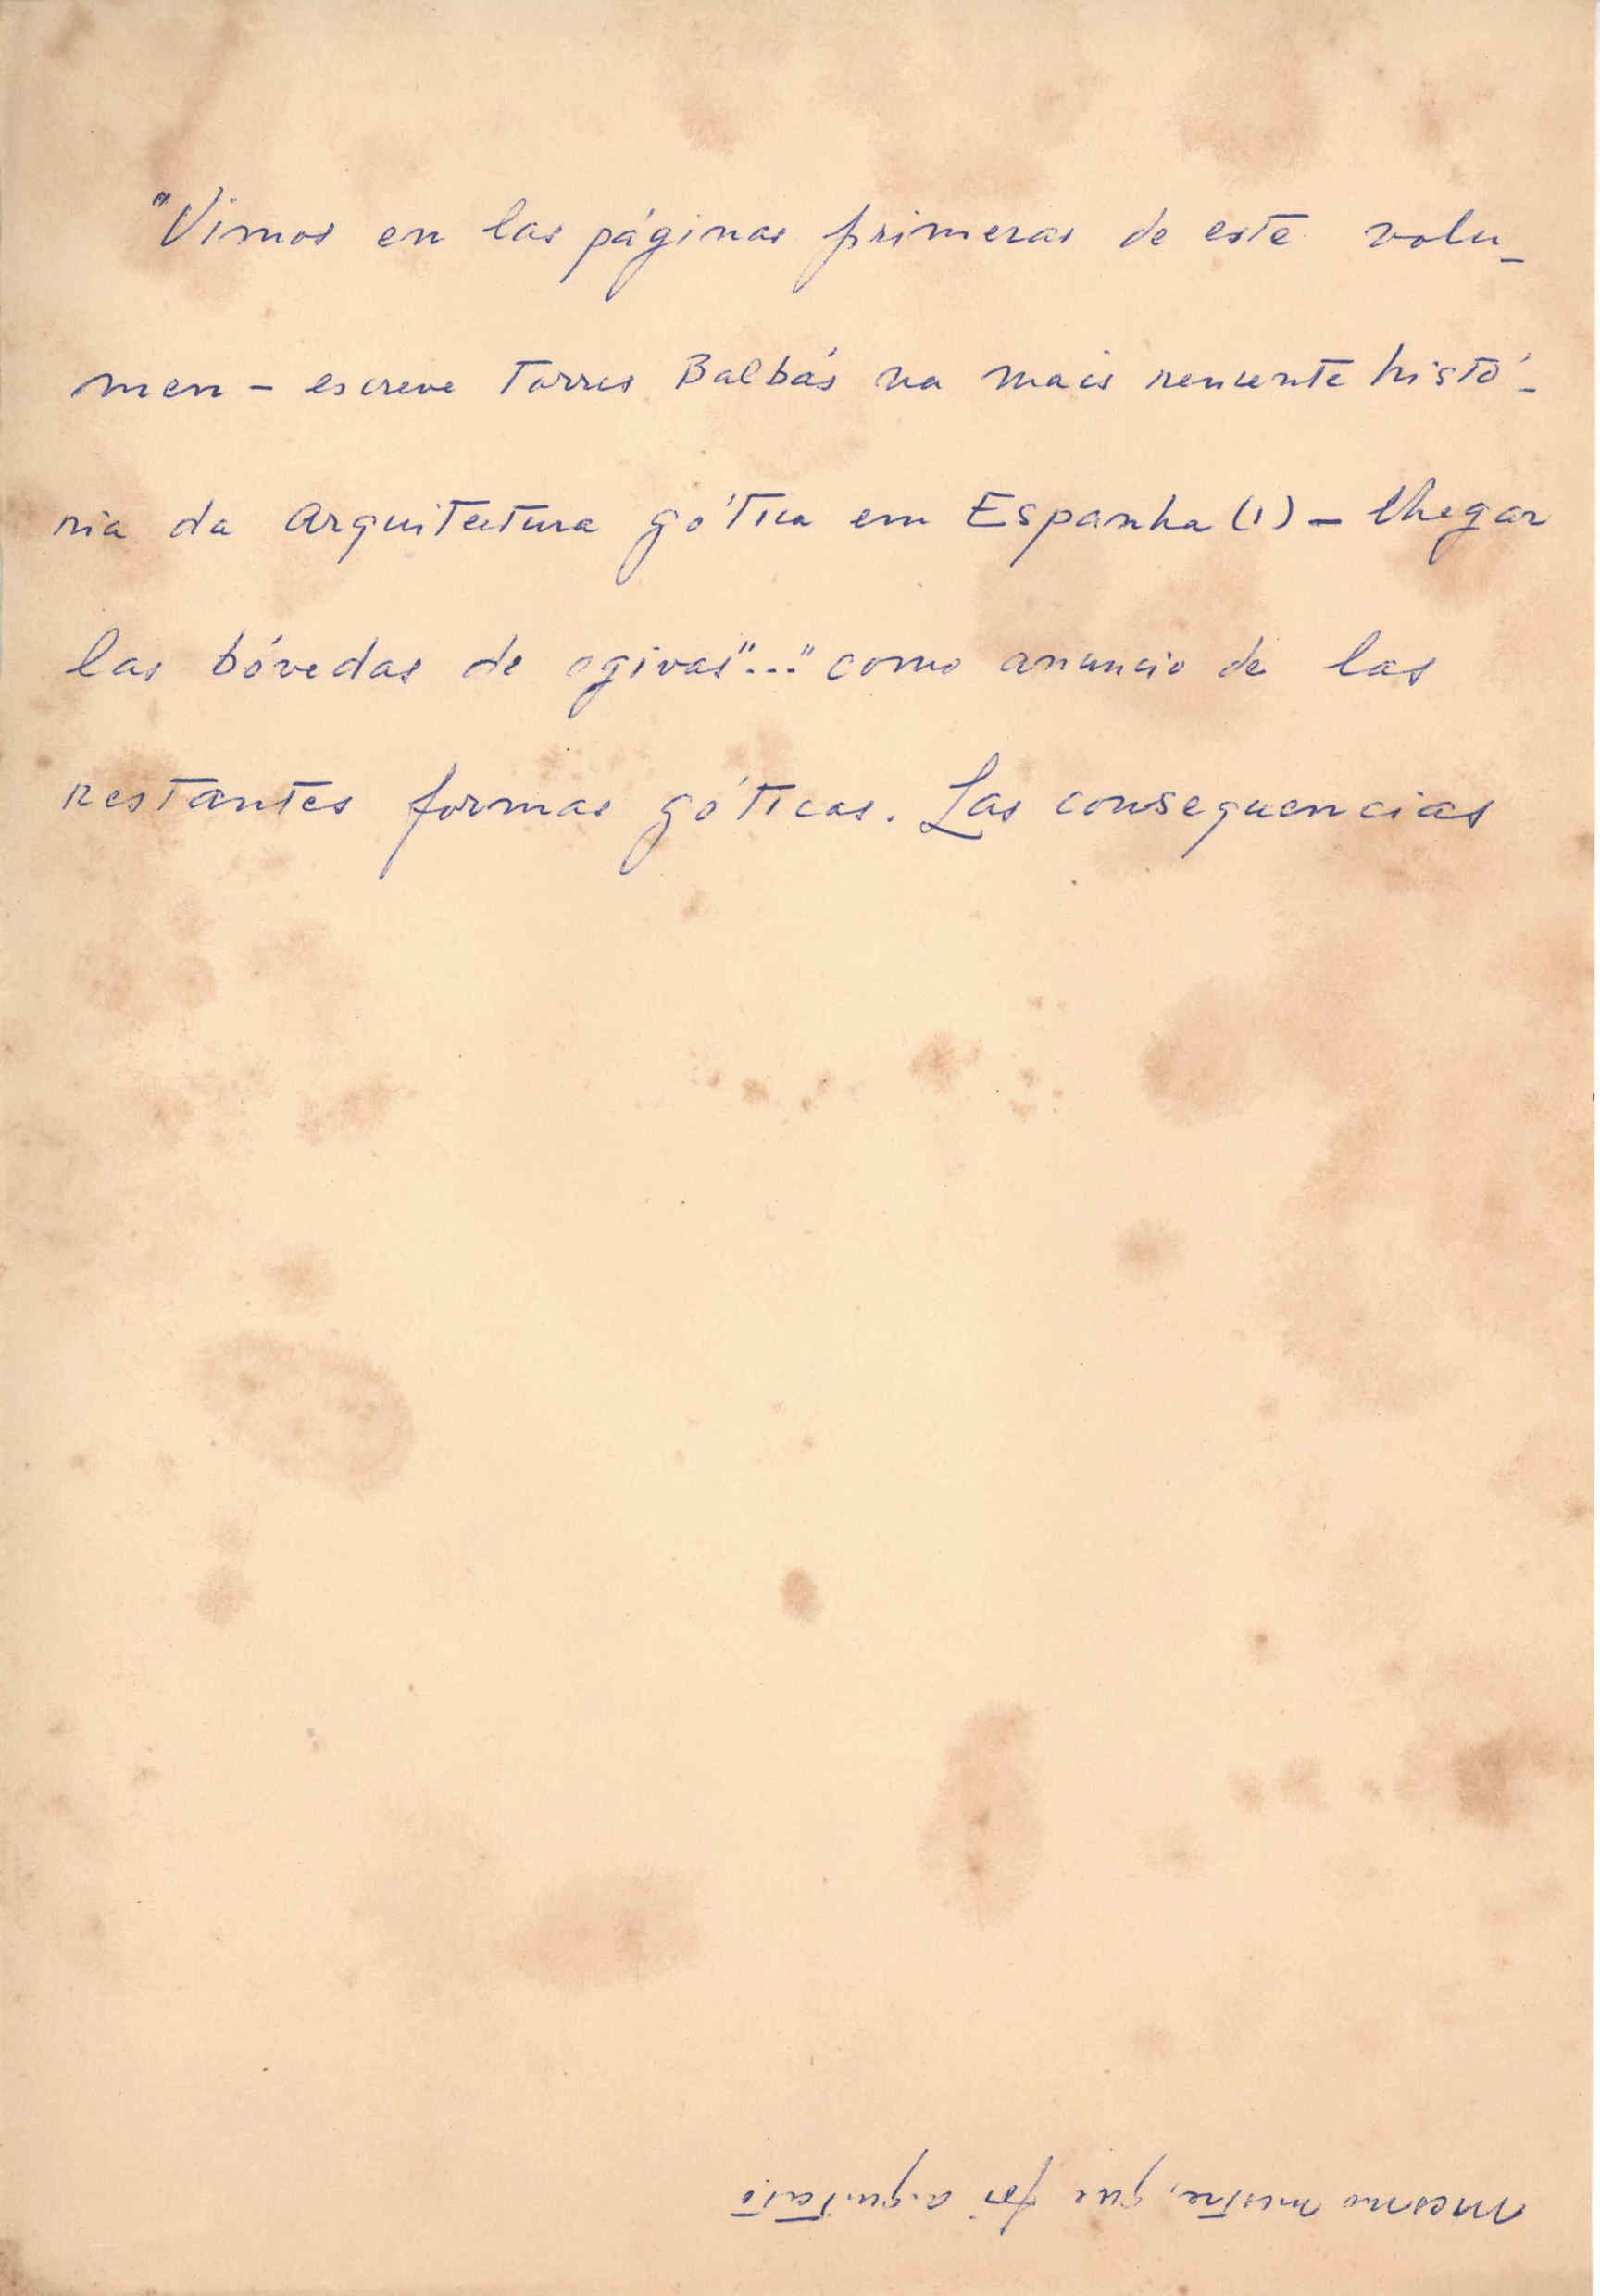 "Vimos en las páginas primeras de este volu-
men – escreve Torres Balbás na mais recente histó-
ria da arquitectura gótica em Espanha (1) – llegar
las bóvedas de ogivas"..."como anuncio de las
restantes formas góticas. Las consequencias
mesmo mestre, que foi arquitecto